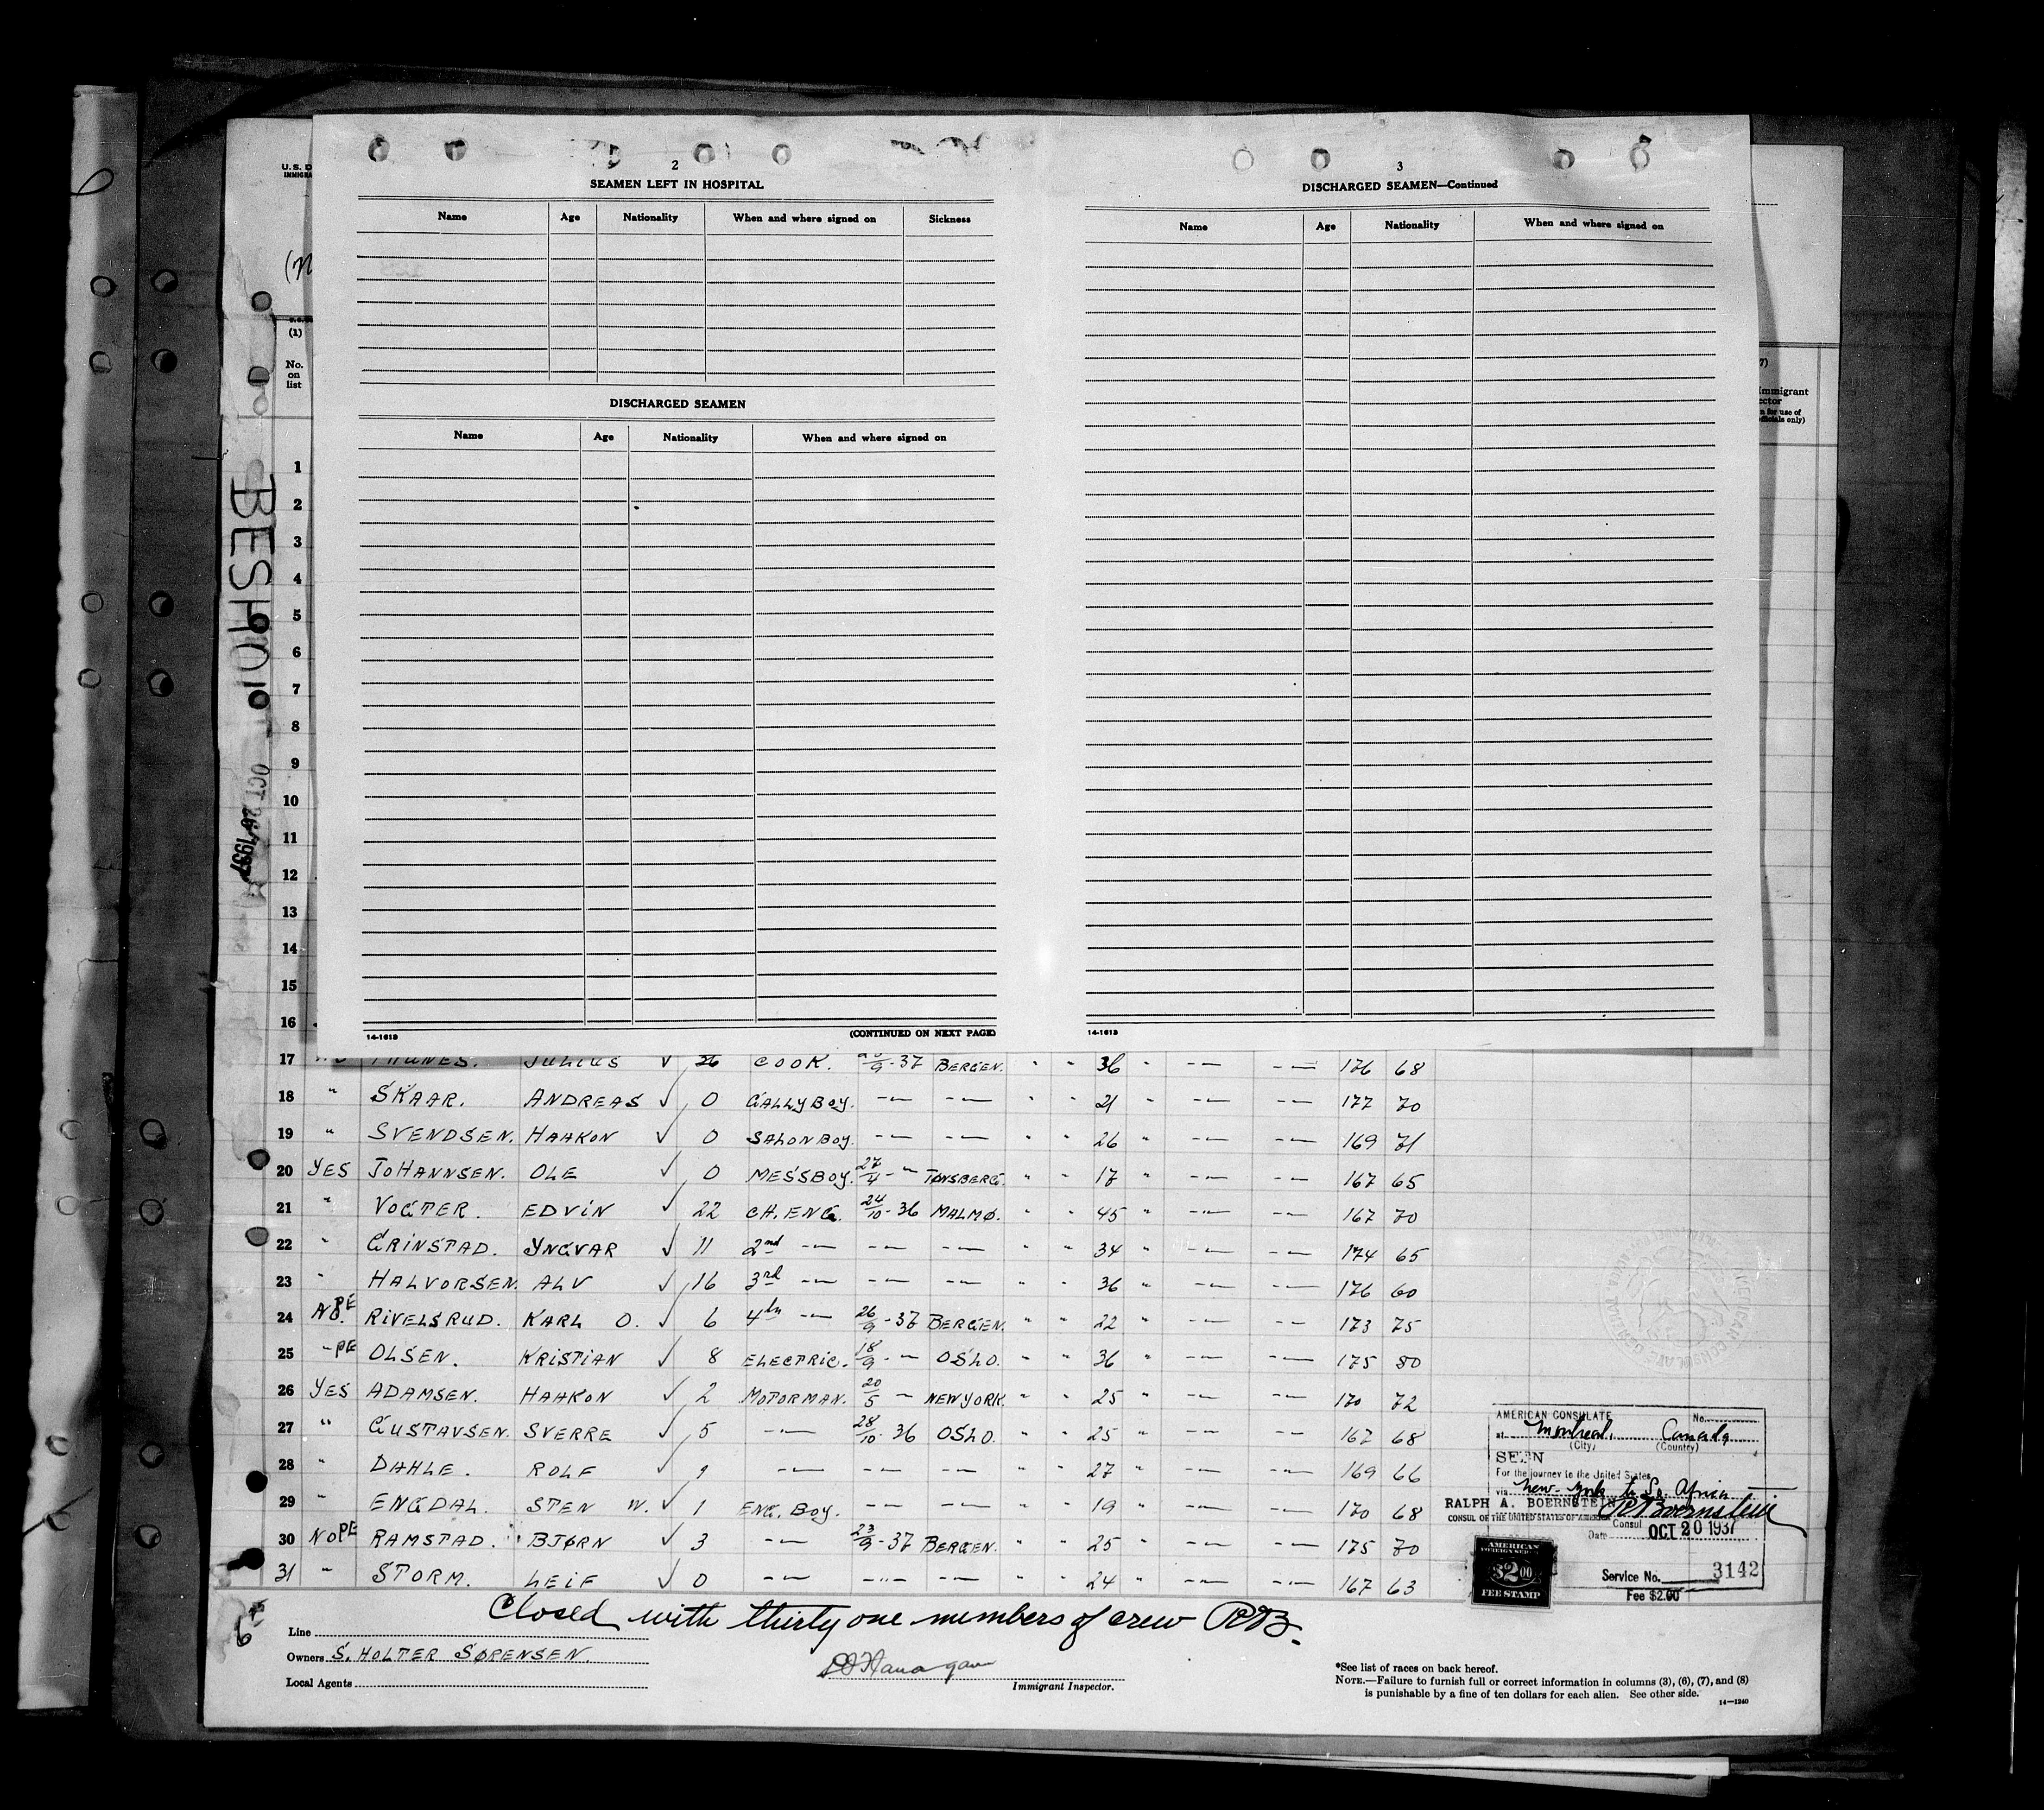 2
SEAMEN LEFT IN HOSPITAL
Name Age Nationality When and where signed on Sickness
DISCHARGED SEAMEN
Name Age Nationality When and where signed on
14-1613 (CONTINUED ON NEXT PAGE)
3
DISCHARGED SEAMEN—Continued
Name Age Nationality When and where signed on
14-1613
U.S. D
IMMIGRA
(1)
No.
on
list
7)
Immigrant
ector
n for use of
officials only)
OCT 26 1937
1
2
3
4
5
6
7
8
9
10
11
12
13
14
15
16
17 JULIUS ✓ 36 COOK. 9 - 37 BERGEN. " " 36 " -"- -"- 176 68
18 " SKAAR. ANDREAS ✓ 0 GALLYBOY. -"- -"- " " 21 " -"- -"- 177 70
19 " SVENDSEN. HAAKON ✓ 0 SALONBOY. -"- -"- " " 26 " -"- -"- 169 71
20 YES JOHANNSEN. OLE ✓ 0 MESSBOY. 27/4 - " TØNSBERG. " " 17 " -"- -"- 167 65
21 " VOGTER. EDVIN ✓ 22 CH. ENG. 24/10 - 36 MALMØ. " " 45 " -"- -"- 167 70
22 " GRINSTAD. YNGVAR ✓ 11 2nd -"- -"- -"- " " 34 " -"- -"- 174 65
23 " HALVORSEN. ALV ✓ 16 3rd -"- -"- -"- " " 36 " -"- -"- 176 60
24 NO. PE RIVELSRUD. KARL O. ✓ 6 4th -"- 26/9 - 37 BERGEN. " " 22 " -"- -"- 173 75
25 " PE OLSEN. KRISTIAN ✓ 8 ELECTRIC. 18/9 - " OSLO. " " 36 " -"- -"- 175 80
26 YES ADAMSEN. HAAKON ✓ 2 MOTORMAN. 20/5 " NEWYORK. " " 25 " -"- -"- 170 72
27 " GUSTAVSEN. SVERRE ✓ 5 -"- 28/10 - 36 OSLO. " " 25 " -"- -"- 167 68
28 " DAHLE. ROLF ✓ 9 -"- -"- -"- " " 27 " -"- -"- 169 66
29 " ENGDAL. STEN W. ✓ 1 ENG. BOY. -"- -"- " " 19 " -"- -"- 170 68
30 NO PE RAMSTAD. BJØRN ✓ 3 -"- 23/9 - 37 BERGEN. " " 25 " -"- -"- 175 70
31 " STORM. LEIF ✓ 0 -"- -"- -"- " " 24 " -"- -"- 167 63
AMERICAN CONSULATE No.
at Montreal, Canada
(City) (Country)
SEEN
For the journey to the United States
via New-York to So. African
RALPH A. BOERNSTEIN
CONSUL OF THE UNITED STATES OF AMERICA
Consul
Date OCT 20 1937
Service No. 3142
Fee $2.00
AMERICAN
FOREIGN SERVICE
$2.00
FEE STAMP
Closed with thirty one members of crew RAB.
Line
Owners S. HOLTER SØRENSEN.
Local Agents
Immigrant Inspector.
*See list of races on back hereof.
NOTE.—Failure to furnish full or correct information in columns (3), (6), (7), and (8)
is punishable by a fine of ten dollars for each alien. See other side.
14—1240